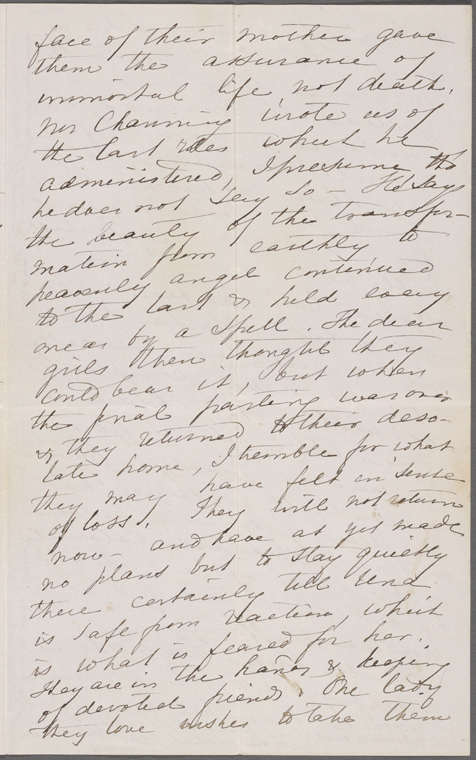 face of their mother gave
them the assurance of
immortal life not death.
Mr Channing wrote us of
the last rites which he
administered, I presume, tho
he does not say so - He says
the beauty of the transfor-
mation from earthly to
heavenly angel continued
to the last & held every
one as by a spell. The dear
girls then thought they
could bear it, but when
the final parting was over
& they returned to their deso-
late home, I tremble for what
they may have felt in sense
of loss. They will not return
now - and have as yet made
no plans but to stay quietly
there certainly till Una
is safe from reaction, which
is what is feared for her.
They are in the hands & keeping
of devoted friends. One lady
they love wishes to take them